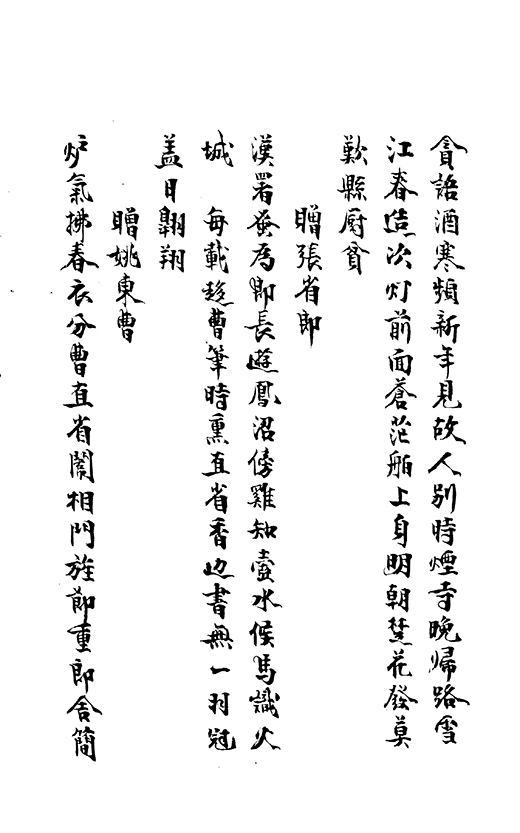 貪語酒寒頻新年見故人別時煙寺晚歸路雪
江春造次灯前面蒼茫舶上身明朝楚花發莫
歎縣厨貧
贈張省郎
漢署蚤為郎長遊鳳沼傍雞知壺水候馬識火
城 每載趍曹筆時熏直省香边書無一羽冠
盖日翱翔
贈姚東曹
炉氣拂春衣分曹直省闈相門旌節重郎舍簡